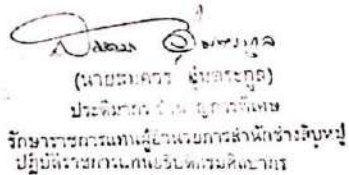 (นายสมควร อุ่มตระกูล)
ประติมากรเชี่ยวชาญการพิเศษ
รักษาราชการแทนผู้อำนวยการสำนักช่างสิบหมู่
ปฏิบัติราชการแทนอธิบดีกรมศิลปากร